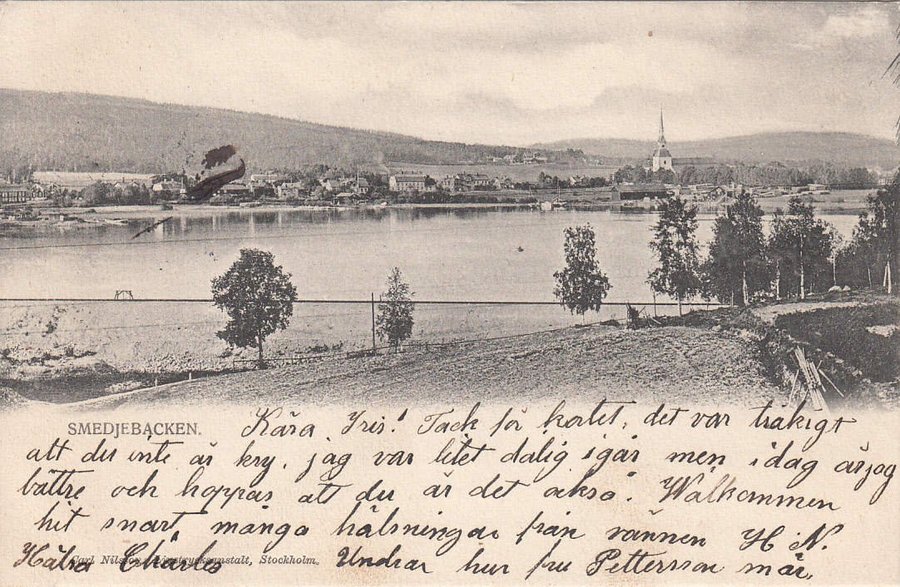 SMEDJEBACKEN.
Kära Iris! Tack för kortet, det var trakigt
att du inte är kry, jag var litet dalig igår men idag är jag
bättre och hoppas att du är det också. Wälkommen
hit snart många hälsningar från vännen H. N.
Carl Nilssons Ljustrycksanstalt, Stockholm.
Hälsa Charles Undrar hur fru Pettersson mår.